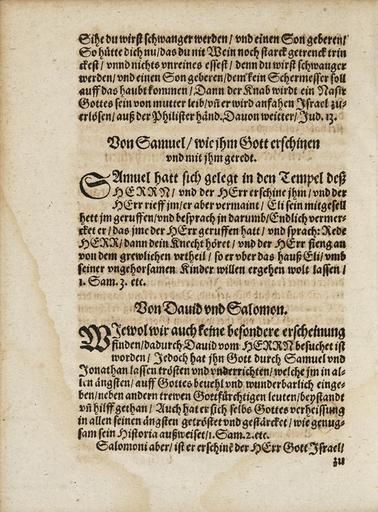 Sihe du wirst schwanger werden/ vnd einen Son geberen/
So hütte dich nu/ das du nit Wein noch starck getrenck trin
ckest/ vnnd nichts vnreines essest/ denn du wirst schwanger
werden/ vnd einen Son geberen/ dem kein Schermesser soll
auff das haubt kommen/ Dann der Knab wirdt ein Nasir
Gottes sein von mutter leib/ vñ er wird anfahen Israel zu-
erlösen/ auß der Philister händ. Dauon weitter/ Jud. 13.
Von Samuel/ wie jhm Gott erschinen
vnd mit jhm geredt.
SAmuel hatt sich gelegt in den Tempel deß
HERRN/ vnd der HErr erschine jhm/ vnd der
HErr rieff jm/ er aber vermaint/ Eli sein mitgesell
hett jm geruffen/ vnd besprach jn darumb/ Endlich vermer-
cket er/ das jme der HErr geruffen hatt/ vnd sprach: Rede
HERR/ dann dein Knecht höret/ vnd der HErr fieng an
von dem grewlichen vrtheil/ so er vber das hauß Eli/ vmb
seiner vngehorsamen Kinder willen ergehen wolt lassen/
1. Sam. 3. etc.
Von Dauid vnd Salomon.
WJewol wir auch keine besondere erscheinung
finden/ dadurch Dauid vom HERRN besuchet ist
worden/ Jedoch hat jhn Gott durch Samuel vnd
Jonathan lassen trösten vnd vnderrichten/ welche jm in al-
len ängsten/ auff Gottes beuehl vnd wunderbarlich einge-
ben/ neben andern trewen Gottfürchtigen leuten/ beystandt
vñ hilff gethan/ Auch hat er sich selbs Gottes verheissung
in allen seinen ängsten getröstet vnd gestärcket/ wie genug-
sam sein Historia außweiset/ 1. Sam. 2. etc.
Salomoni aber/ ist er erschinẽ der HErr Gott Israel/
zu